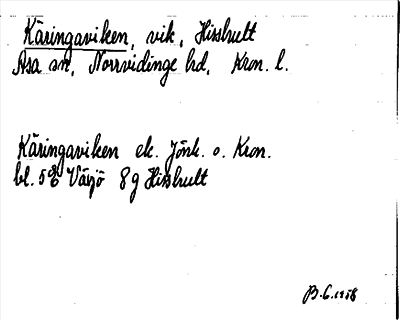 Käringaviken, vik, Hisshult
Asa sn, Norrvidinge hd, Kron. l.
Käringaviken ek. Jönk. o. Kron.
bl. 5E Växjö 8g Hisshult
B.G. 1958